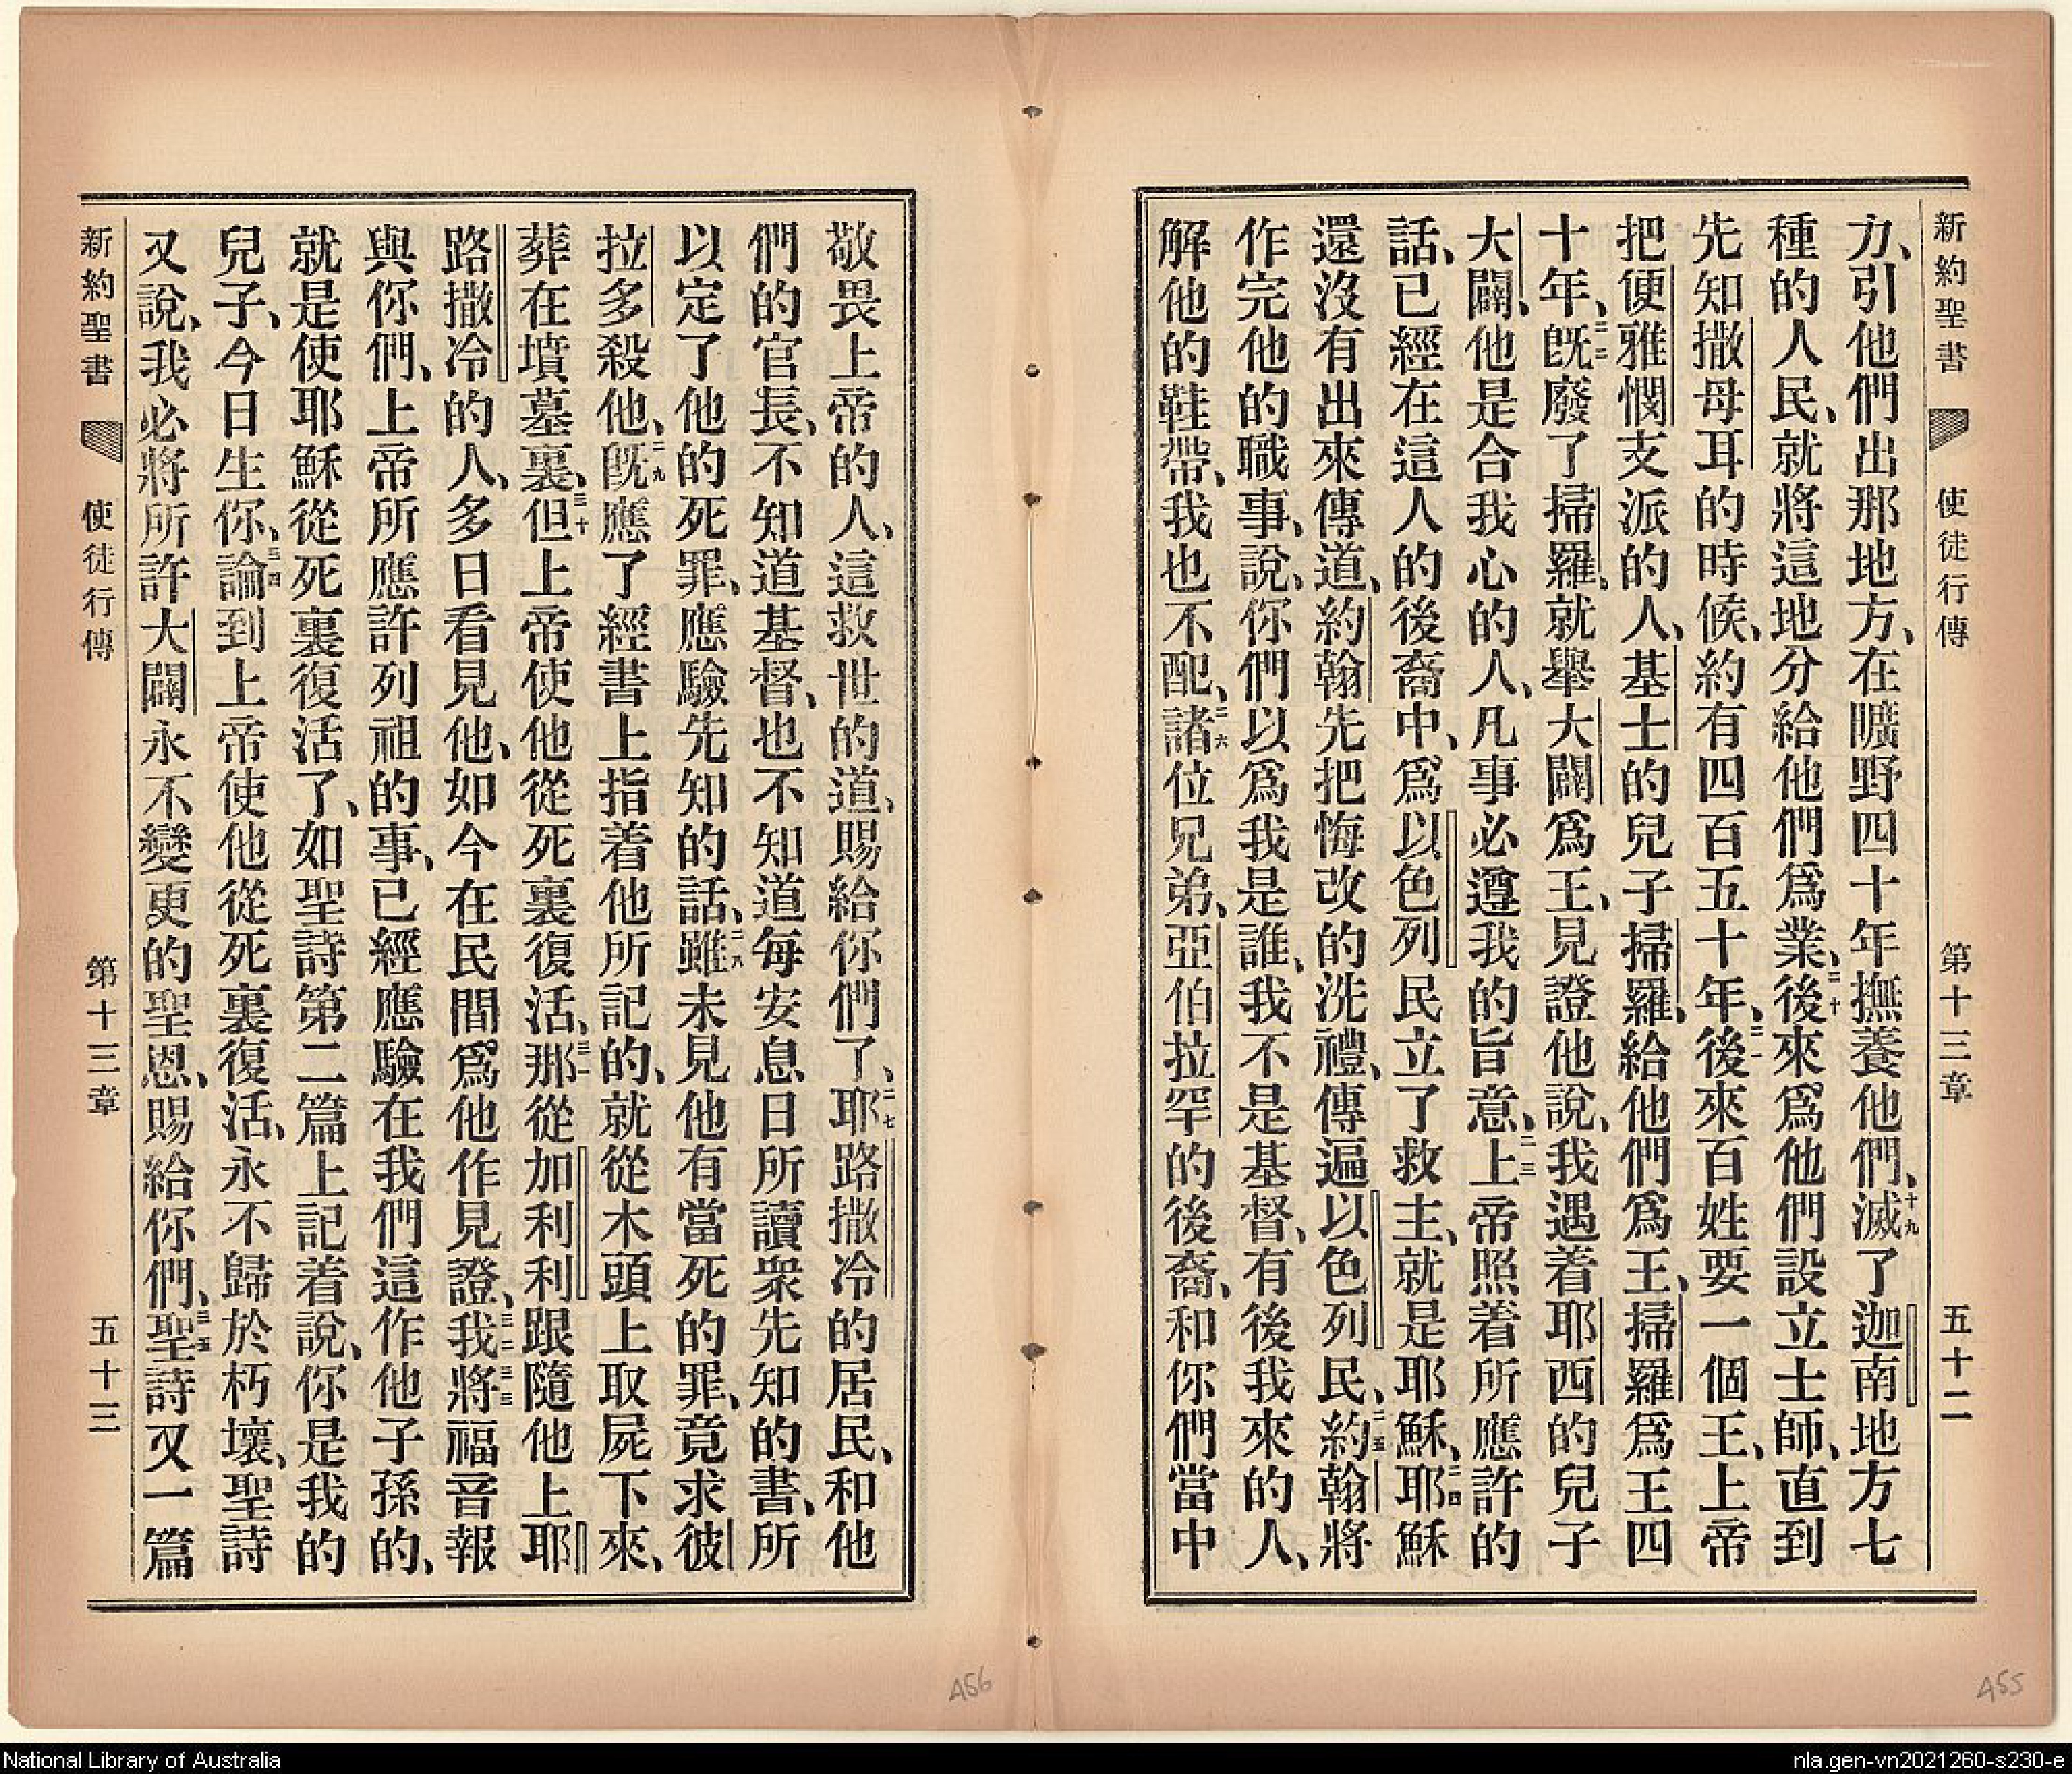 新約聖書 使徒行傳 第十三章 五十二
力、引他們出那地方、在曠野四十年撫養他們、十九滅了迦南地方七
種的人民、就將這地分給他們爲業、二十後來爲他們設立士師、直到
先知撒母耳的時候、約有四百五十年、二一後來百姓要一個王、上帝
把便雅憫支派的人、基士的兒子掃羅、給他們爲王、掃羅爲王四
十年、二二旣廢了掃羅、就舉大闢爲王、見證他說、我遇着耶西的兒子
大闢、他是合我心的人、凡事必遵我的旨意、二三上帝照着所應許的
話、已經在這人的後裔中、爲以色列民立了救主、就是耶穌、二四耶穌
還沒有出來傳道、約翰先把悔改的洗禮、傳遍以色列民、二五約翰將
作完他的職事、說、你們以爲我是誰、我不是基督、有後我來的人、
解他的鞋帶、我也不配、二六諸位兄弟、亞伯拉罕的後裔、和你們當中
敬畏上帝的人、這救世的道、賜給你們了、二七耶路撒冷的居民、和他
們的官長、不知道基督、也不知道每安息日所讀衆先知的書、所
以定了他的死罪、應驗先知的話、二八雖未見他有當死的罪、竟求彼
拉多殺他、二九旣應了經書上指着他所記的、就從木頭上取屍下來、
葬在墳墓裏、三十但上帝使他從死裏復活、三一那從加利利跟隨他上耶
路撒冷的人、多日看見他、如今在民間爲他作見證、三二三三我將福音報
與你們、上帝所應許列祖的事、已經應驗在我們這作他子孫的、
就是使耶穌從死裏復活了、如聖詩第二篇上記着說、你是我的
兒子、今日生你、三四論到上帝使他從死裏復活、永不歸於朽壞、聖詩
又說、我必將所許大闢永不變更的聖恩、賜給你們、三五聖詩又一篇
新約聖書 使徒行傳 第十三章 五十三
456
455
National Library of Australia
nla.gen-vn2021260-s230-e